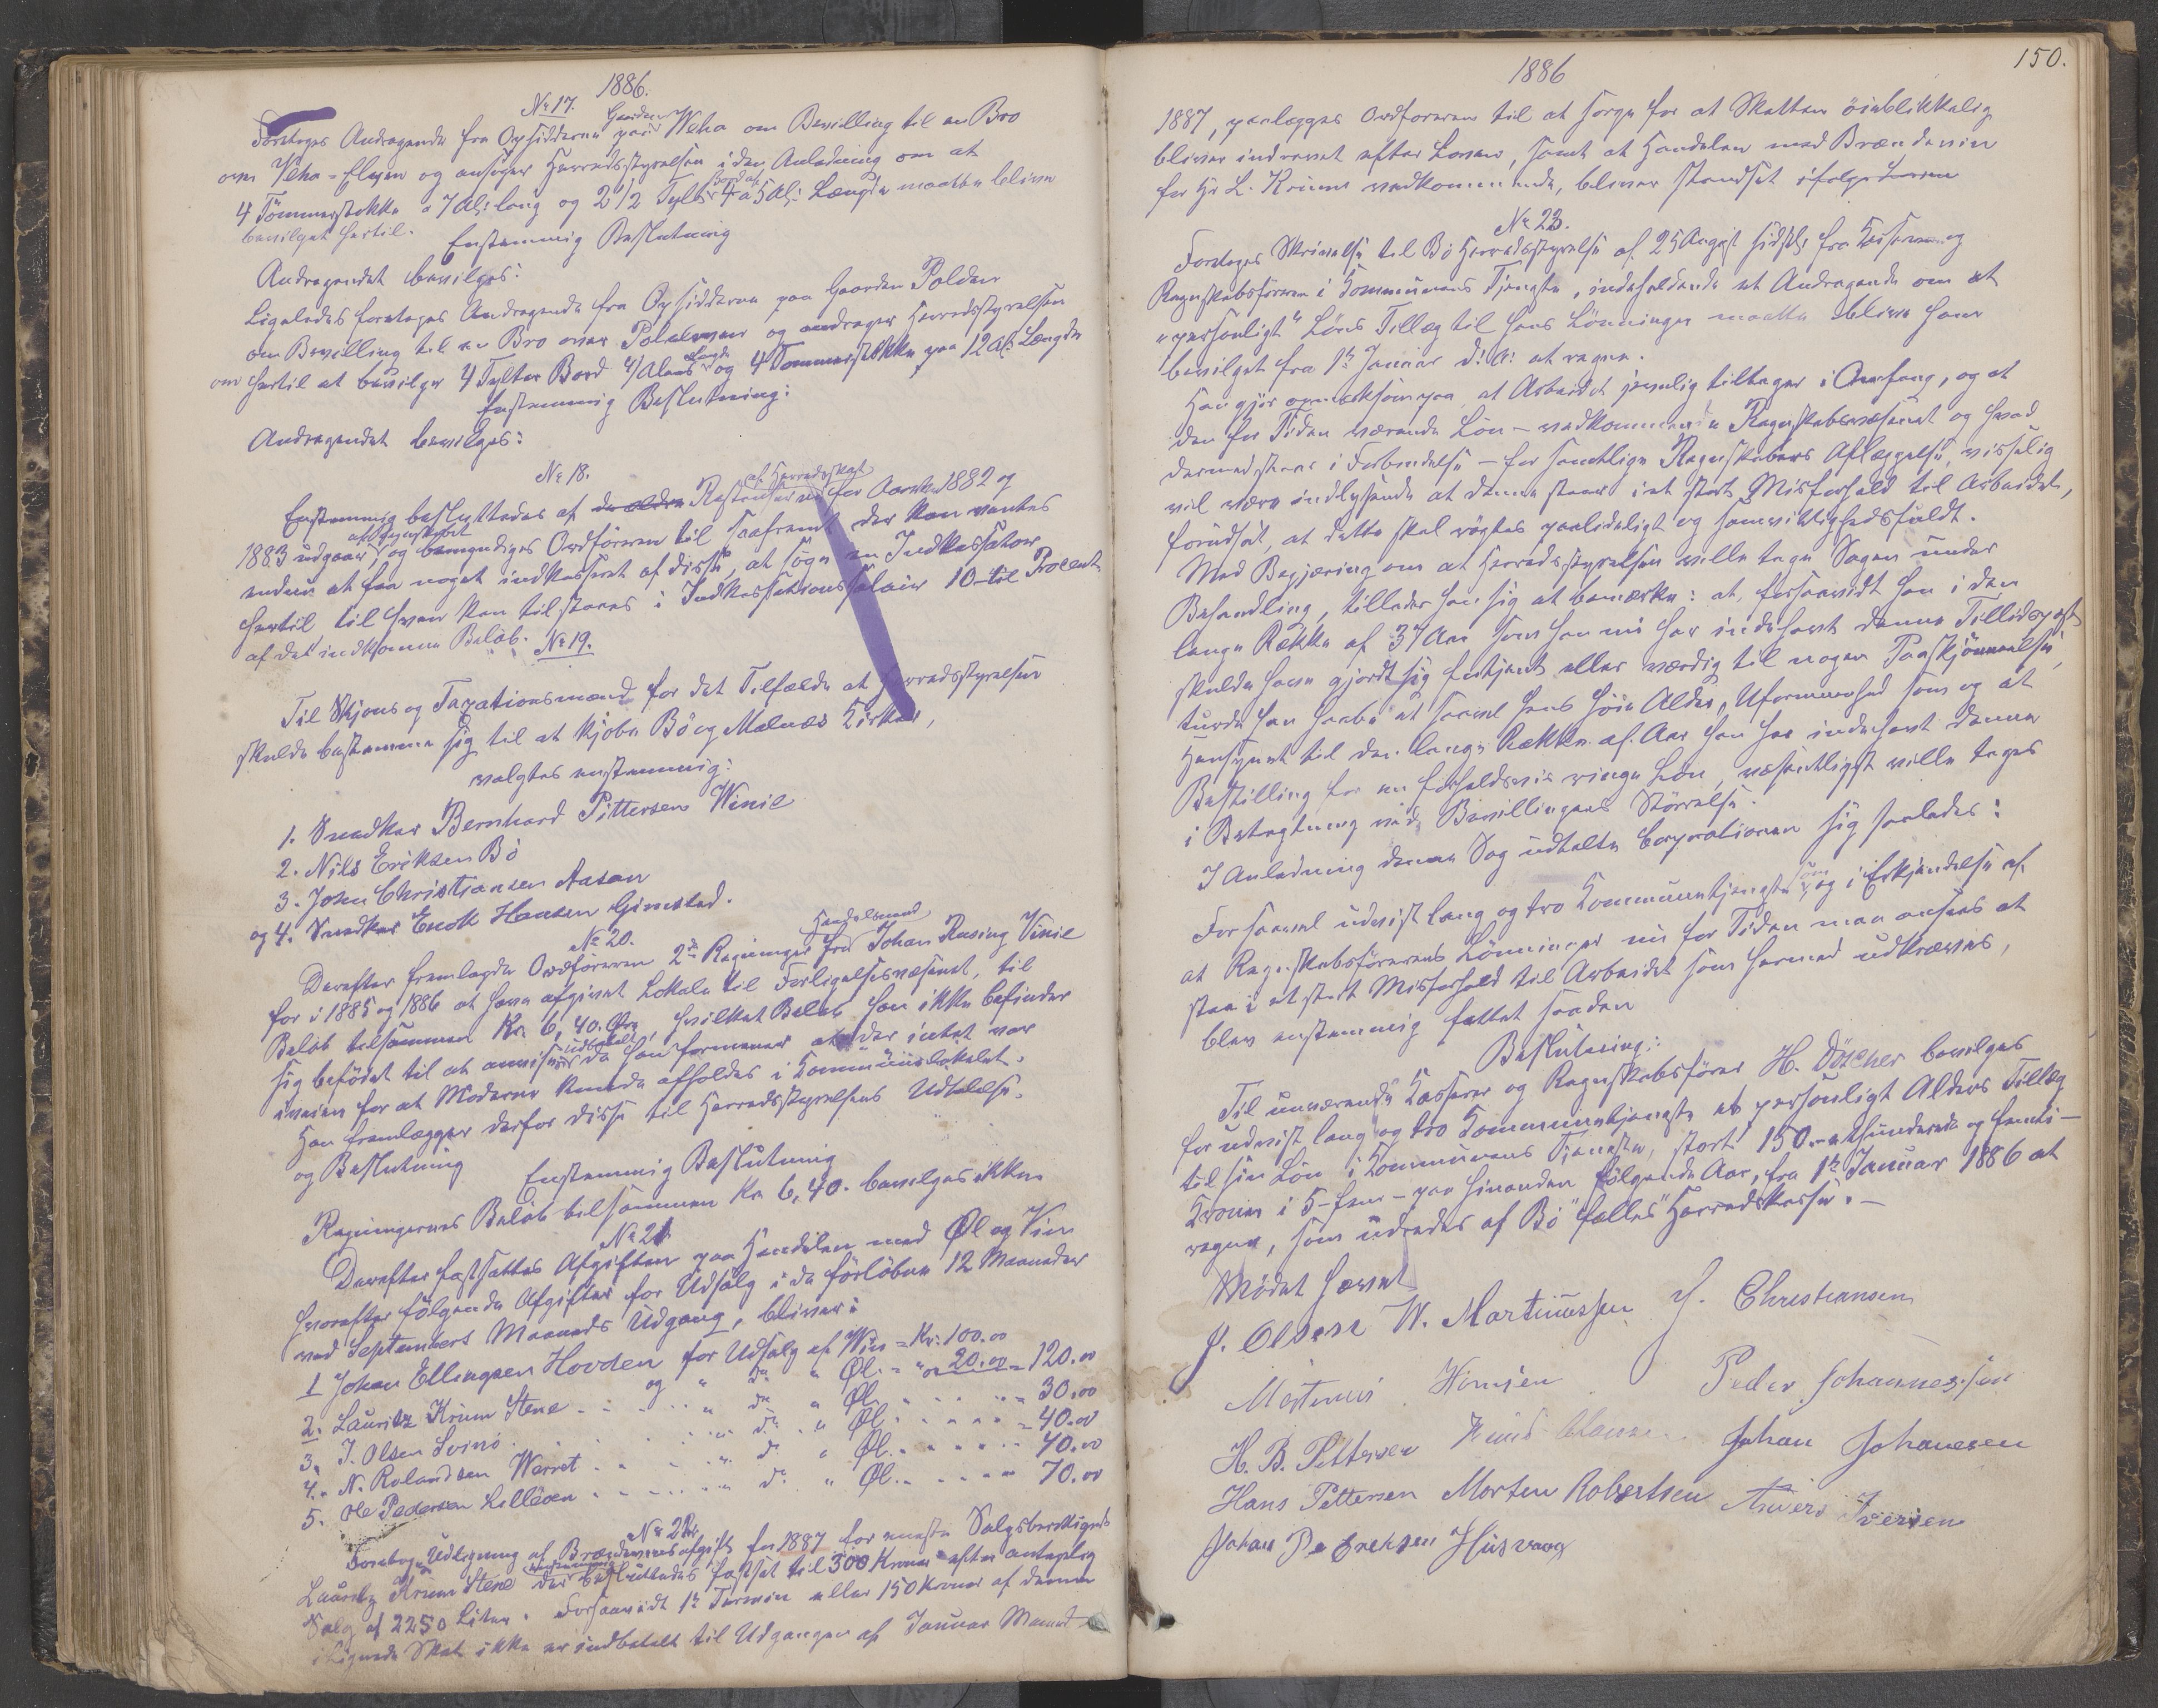 1886.
No 17.
Foretoges Andragende fra Opsidderne paa Gaarden Veha om Bevilling til en Bro
over Veha-Elven og ansøger Herredsstyrelsen i den Anledning om at
4 Tømmerstokke a 7 Al: lang og 2 1/2 Tylt Bord af 4 a 5 Al: Længde maatte blive
bevilget hertil.
Enstemmig Beslutning
Andragendet bevilges:
Ligeledes foretoges Andragende fra Opsidderne paa Gaarden Polden
om Bevilling til en Bro over Polelven og andrager Herredsstyrelsen
om hertil at bevilge 4 Tylter Bord 4 Alens Længde og 4 Tømmerstokke paa 12 Al: Længde
Enstemmig Beslutning:
Andragendet bevilges:
No 18.
Enstemmig besluttedes af de ældre Restancer af Herredsskat for Aarene 1882 og
1883 udgaar af Regnskabet, og bemyndiges Ordføreren til saafremt der kan ventes
endnu at faa noget indkasseret af disse, at søge en Indkassator
hertil til hvem kan tilstaaes i Indkassationssalair 10-til Procent
af det indkomne Beløb.
No 19.
Til Skjøns og Taxationsmænd for det Tilfælde at Herredsstyrelsen
skulde bestemme sig til at kjøbe Bø og Malnæs Kirker,
valgtes enstemmig:
1. Snedker Bernhard Pettersen Winie
2. Nils Eriksen Bø
3. John Christiansen Aasan
og 4. Snedker Enok Hansen Gimstad.
No 20.
Derefter fremlagde Ordføreren 2de Regninger fra Handelsmand Johan Rusing Vinie
for i 1885 og 1886 at have afgivet Lokale til Forligelsesvæsenet, til
Beløb tilsammen Kr. 6,40. Øre, hvilket Beløb han ikke befinder
sig beføiet til at anvise udbetalt da han formener at der intet var
iveien for at Møderne kunde afholdes i Kommunelokalet.
Han fremlægger derfor disse til Herredsstyrelsens Udtalelse
og Beslutning
Enstemmig Beslutning
Regningernes Beløb tilsammen Kr 6,40. bevilges ikke.
No 21
Derefter fastsattes Afgiften paa Handelen med Øl og Vin
hvorefter følgende Afgifter for Udsalg i de forløbne 12 Maaneder
ved Septembers Maaneds Udgang, bliver:
1 Johan Ellingsen Hovden for Udsalg af Win = Kr: 100.00
og " do " Øl. = " 20.00 = 120.00
2. Lauritz Krum Stene " do " Øl 30.00
3. J. Olsen Svinø " do " Øl = 40.00
4. N. Rolandsen Werret " do " Øl 40.00
5. Ole Pedersen Lilleøen " do " Øl 70.00
No 22.
Foretoges Udligning af Brændevinsafgift for 1887 for eneste Salgsberettigede
Lauritz Krum Stene der besluttedes fastsat til 300 Kroner efter antagelig
Salg af 2250 Liter. Forsaavidt 1ste Termin eller 150 Kroner af denne
ilignede Skat ikke er indbetalt til Udgangen af Januar Maaned
1886
150.
1887, paalægges Ordføreren til at sørge for at Skatten øieblikkelig
bliver inddrevet efter Loven, samt at Handelen med Brændevin
for Hr L. Krum vedkommende, bliver standset ifølge Loven
No 23.
Foretoges Skrivelse til Bø Herredsstyrelse af 25 August sidstl. fra Kasserer og
Regnskabsfører i Kommunens Tjeneste, indeholdende et Andragende om et
"personligt" Løns Tillæg til hans Lønninger maatte blive ham
bevilget fra 1ste Januar d: A: at regne.
Han gjør opmærksom paa, at Arbeidet jevnlig tiltager i Omfang, og at
den for Tiden værende Løn - vedkommende Regnskabsvæsenet og hvad
dermed staar i Forbindelse - for samtlige Regnskabers Aflæggelse, visselig
vil være indlysende at denne staar i et stort Misforhold til Arbeidet,
forudsat, at dette skal røgtes paalideligt og samvittighedsfuldt.
Med Begjæring om at Herredsstyrelsen ville tage Sagen under
Behandling, tillader han sig at bemærke: at, forsaavidt han i den
lange Række af 37 Aar som han nu har indehavt denne Tillidspost
skulde have gjordt sig fortjent eller værdig til nogen Paaskjønnelse,
turde han haabe at saavel hans høie Alder, Uformuenhed som og at
Hensynet til den lange Række af Aar han har indehavt denne
Bestilling for en forholdsvis ringe Løn, væsentligst ville tages
i Betragtning ved Bevillingens Størrelse.
I Anledning denne Sag udtalte Corporationen sig saaledes:
For saavel udvist lang og tro Kommunetjeneste som og i Erkjendelse af
at Regnskabsførerens Lønninger nu for Tiden maa ansees at
staa i et stort Misforhold til Arbeidet som hermed udkræves,
blev enstemmig fattet saadan
Beslutning:
Til nuværende Kasserer og Regnskabsfører H. Døscher bevilges
for udvist lang og tro Kommunetjeneste et personligt Alders Tillæg
til sin Løn i Kommunens Tjeneste, stort 150.- Ethundrede og femti -
Kroner i 5-fem - paa hinanden følgende Aar, fra 1ste Januar 1886 at
regne, som udredes af Bø "fælles" Herredskasse. -
Mødet hævet
J. Olsen W. Martinussen J. Christiansen
Martinus Hansen Peder Johannessen
H. B. Pettersen Johan Johanesen
Hans Pettersen Morten Robertsen Sivert Iversen
Johan P. Erehsen Husvaag